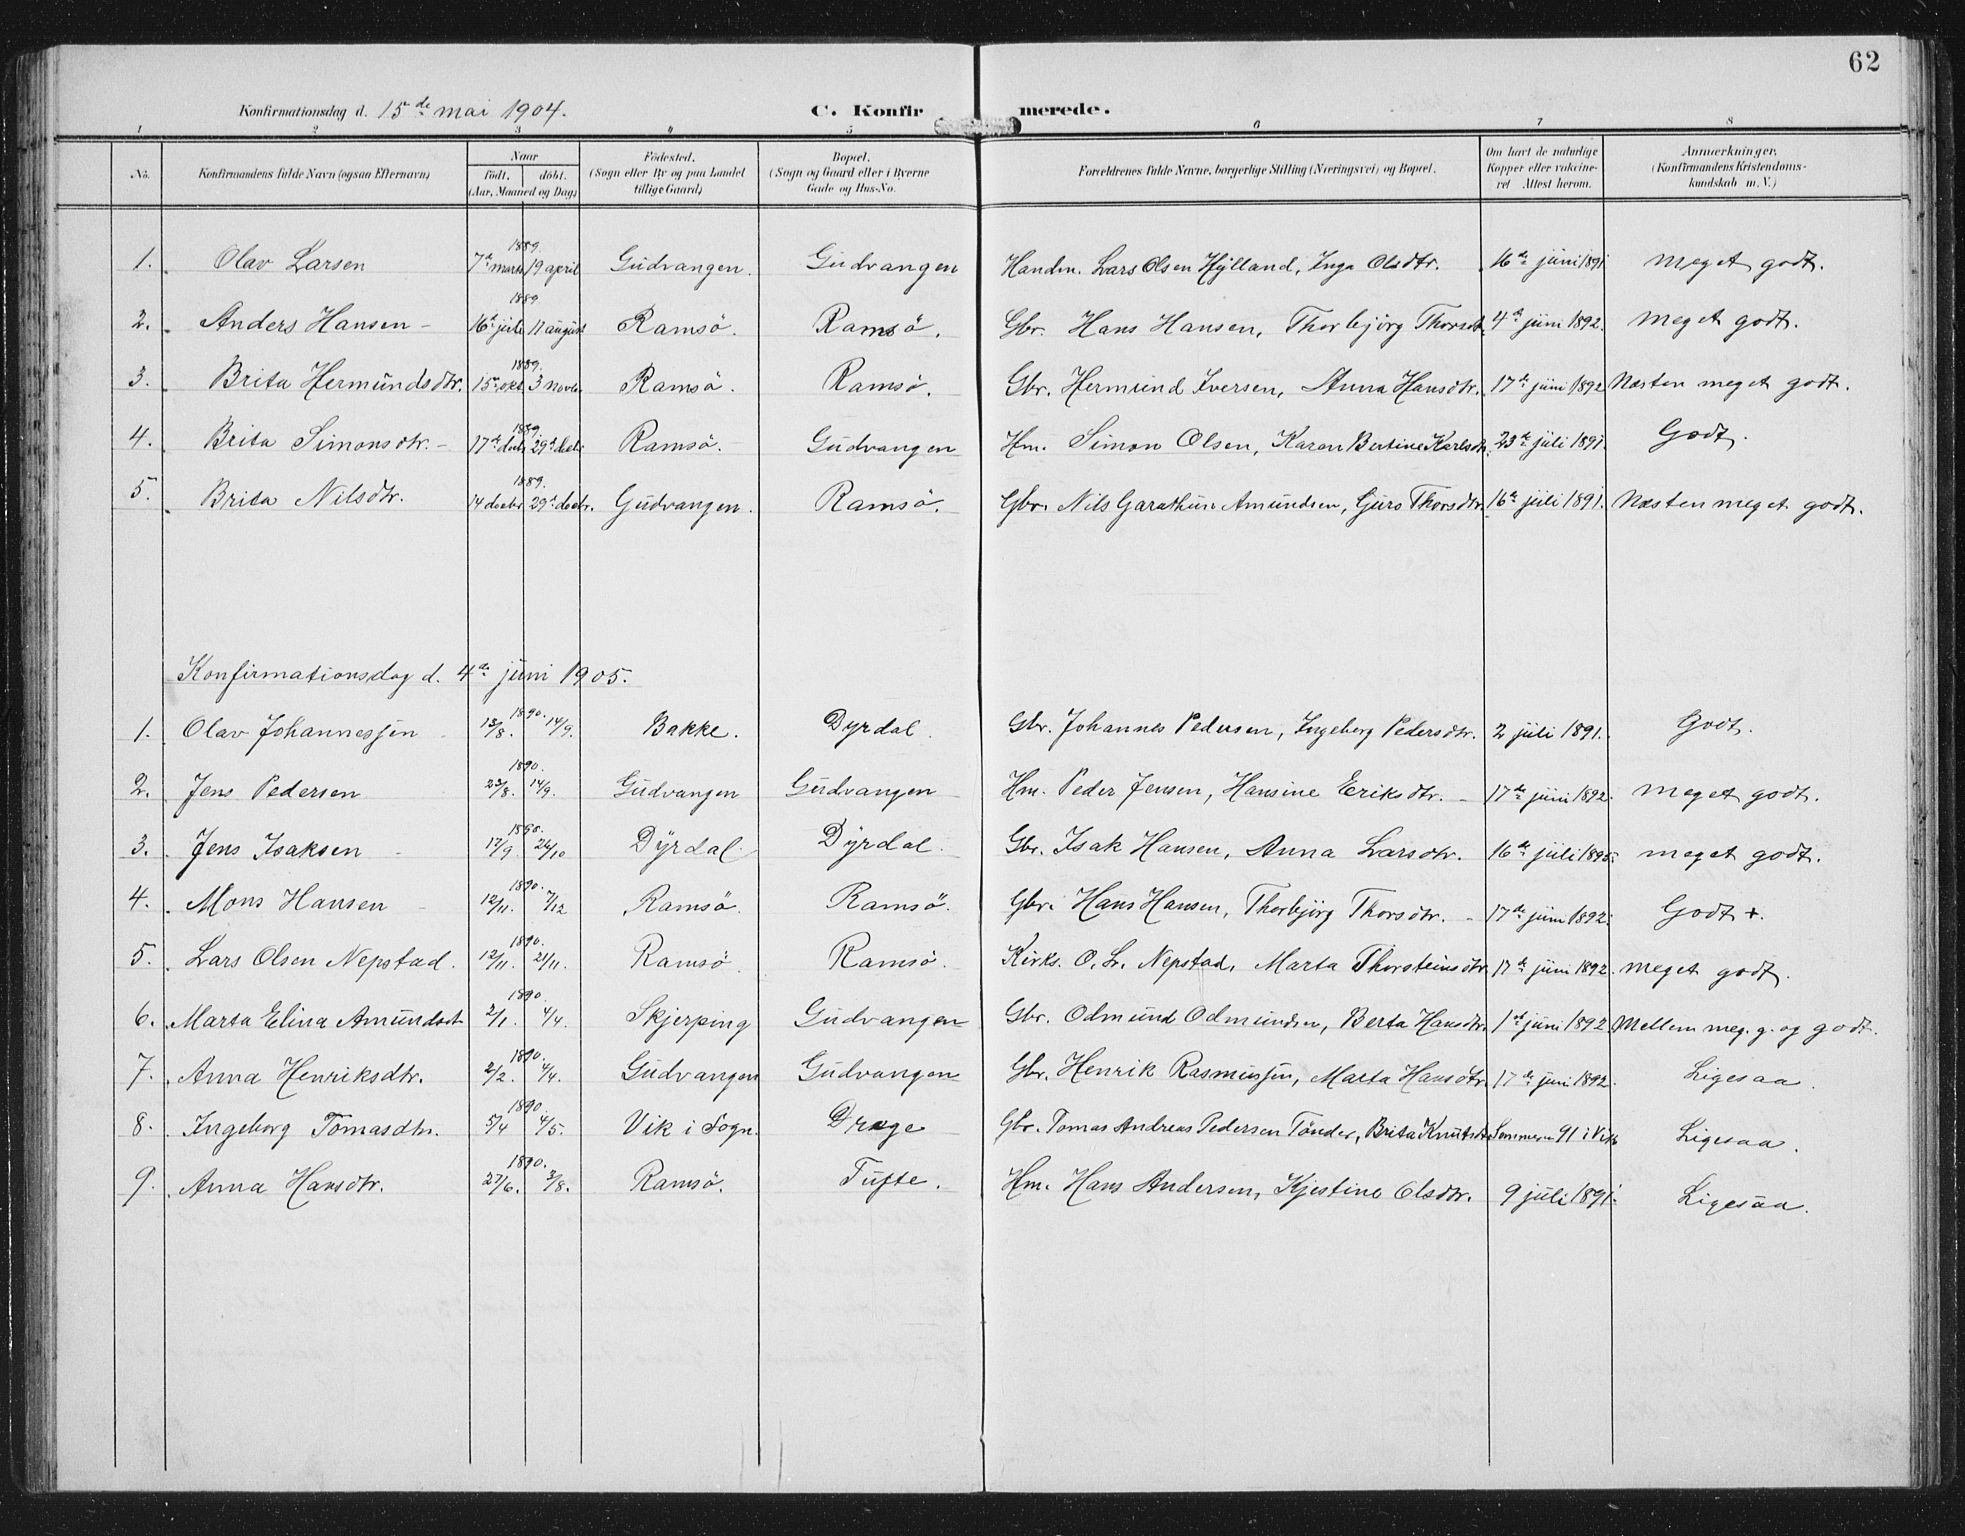 62
Konfirmationsdag d. 15de mai 1904. C. Konfirmerede.
1 2 3 4 5 6 7 8
No. Konfirmandens fulde Navn (ogsaa Efternavn) Naar födt. döbt. (Aar, Maaned og Dag) Födested. (Sogn eller By og paa Landet tillige Gaard) Bopæl. (Sogn og Gaard eller i Byerne Gade og Hus-No. Forældrenes fulde Navne, borgerlige Stilling (Næringsvei) og Bopæl. Om havt de naturlige Kopper eller vaccineret Attest herom. Anmærkninger, (Konfirmandens Kristendomskundskab m. V.)
1. Olav Larsen 1889. 7de marts 19 april Gudvangen. Gudvangen Handm. Lars Olsen Hylland, Inga Olsdtr. 16de juni 1891 Meget godt.
2. Anders Hansen - 1889 16de juli 11 august Ramsö. Ramsö. Gbr. Hans Hansen, Thorbjörg Thorsdt. 4de juni 1892. Meget godt.
3. Brita Hermundsdtr. 1889. 15de okt. 3 novbr. Ramsö. Ramsö. Gbr. Hermund Iversen, Anna Hansdtr. 17de juni 1892 Næsten meget godt.
4. Brita Simonsdtr. - 1889. 17de decbr 29de decbr Ramsö. Gudvangen Hm. Simon Olsen, Karen Bertine Karlsdtr. 23de juli 1891. Godt.
5. Brita Nilsdtr. 1889. 14 decbr 29de decbr. Gudvangen. Ramsö. Gbr. Nils Garathun Amundsen, Guro Thorsdtr. 16de juli 1891. Næsten meget godt.
Konfirmationsdag d. 4de juni 1905.
1. Olav Johannessen 1890. 13/8. 14/9. Bakke. Dyrdal. Gbr. Johannes Pedersen, Ingeborg Pedersdtr. 2 juli 1891. Godt.
2. Jens Pedersen 1890. 23/8. 14/9. Gudvangen Gudvangen Hm. Peder Jensen, Hansine Eriksdtr. - 17de juni 1892. Meget godt.
3. Jens Isaksen - 1890. 17/9. 26/10 Dyrdal. Dyrdal. Gbr. Isak Hansen, Anna Larsdtr. 16de juli 1895. meget godt.
4. Mons Hansen - 1890. 12/11. 7/12 Ramsö. Ramsö. Gbr. Hans Hansen, Thorbjörg Thorsdtr. - 17de juni 1892. Godt +.
5. Lars Olsen Nepstad. 1890. 12/11. 21/11. Ramsö. Ramsö. Kirks. O. L. Nepstad, Marta Thorsteinsdtr. 17de juni 1892. meget godt.
6. Marta Elina Amundsdt 1890. 2/1. 4/4. Skjerping Gudvangen Gbr. Odmund Odmundsen, Berta Hansdtr. 1st juni 1892 Mellem meg. g. og godt.
7. Anna Henriksdtr. 1890. 2/2. 4/4. Gudvangen Gudvangen Gbr. Henrik Rasmussen, Marta Hansdtr. 17de juni 1892. Ligesaa.
8. Ingeborg Tomasdtr. 1890. 5/4 4/5. Vik i Sogn. Drage Gbr. Tomas Andreas Pedersen Tönder, Brita Knutsdtr Sommeren 91 i Vik Ligesaa.
9. Anna Hansdtr. 1890. 27/6. 3/8. Ramsö. Tufte. Hm. Hans Andersen, Kjestine Olsdtr. 9 juli 1891. Ligesaa.